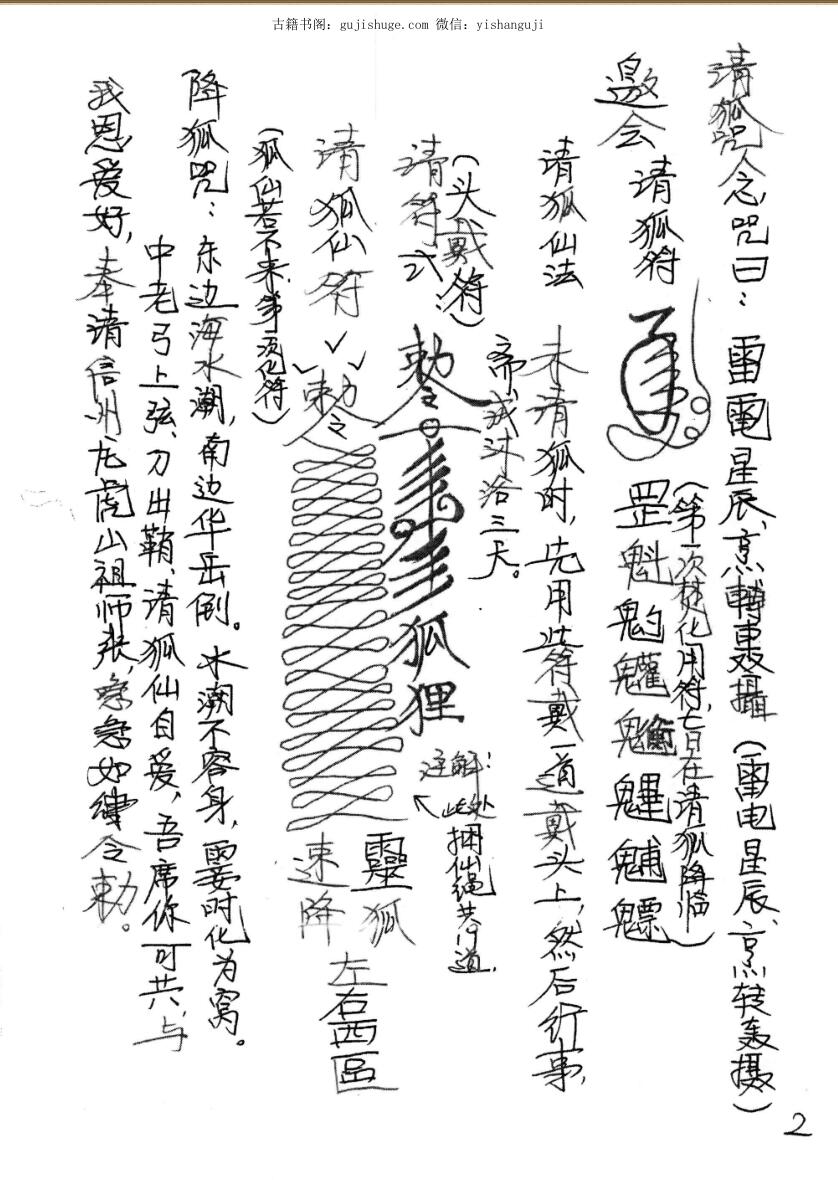 古籍书阁：gujishuge.com 微信：yishanguji
请狐咒念咒曰：雷電星辰、烹轉轟攝（雷电星辰、烹转轰摄）
（第一次焚化用符，七日在请狐降临）
邀会 请狐符 罡魁魁魓魒
请狐仙法 未请狐时，先用此符戴一道戴头上，然后行事，
斋戒沐浴三天。
（头戴符）
请符式 敕令 狐狸
注解：此处捆仙绳共 道
请狐仙符 敕令 靈狐速降 左右西區
（狐仙若不来，第 次化符）
降狐咒：东边海水潮，南边华岳倒。水潮不容身，霎时化为窝。
中老弓上弦、刀出鞘、请狐仙自爱，吾席你可共，与
我恩爱好，奉请信州龙虎山祖师张，急急如律令敕。
2